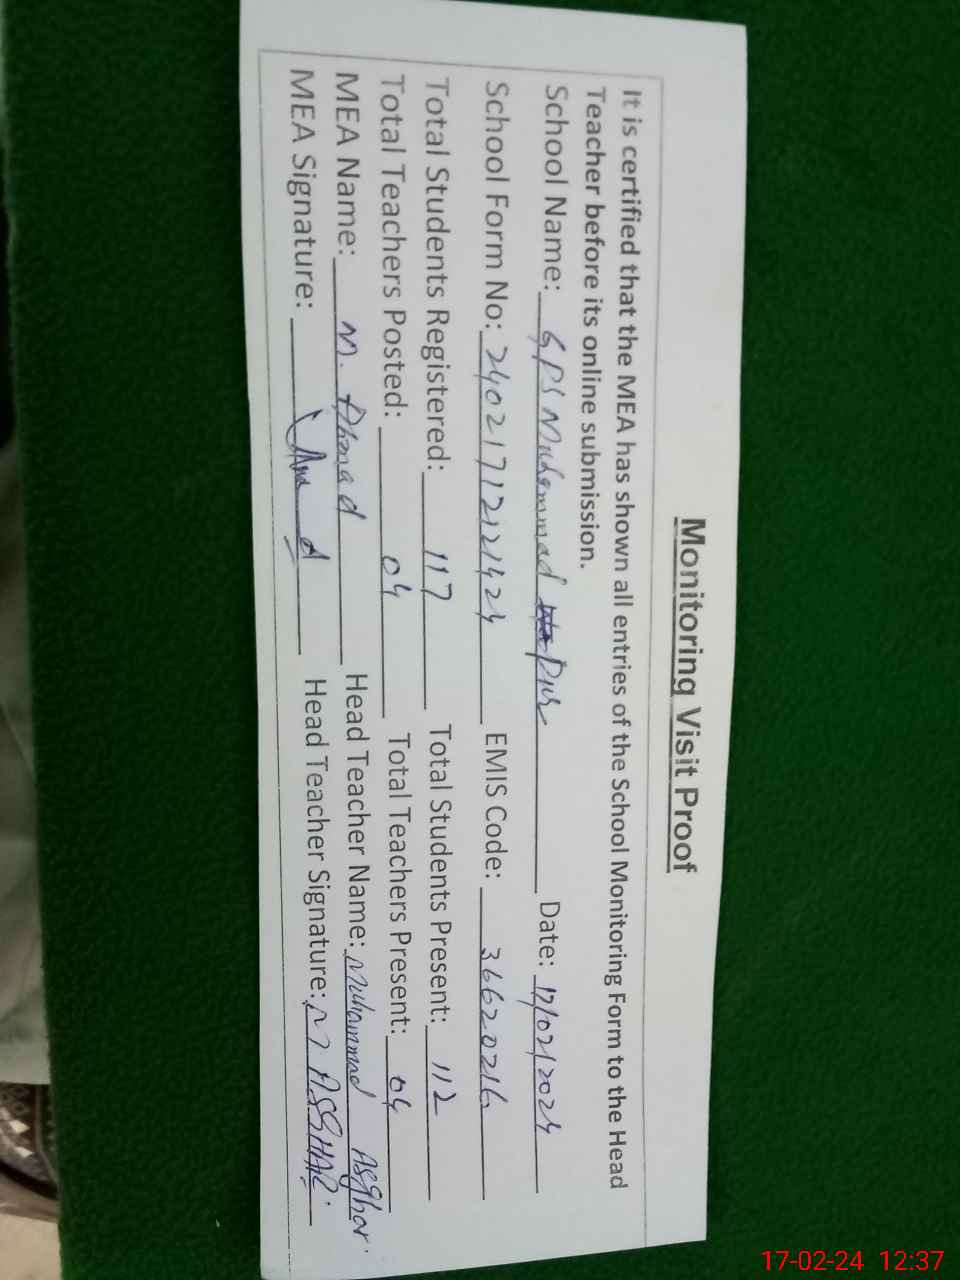 Monitoring Visit Proof
It is certified that the MEA has shown all entries of the School Monitoring Form to the Head
Teacher before its online submission.
School Name: GPS Muhammad Pur Date: 17/02/2024
School Form No: 24021712121424 EMIS Code: 36620216
Total Students Registered: 117 Total Students Present: 112
Total Teachers Posted: 04 Total Teachers Present: 04
MEA Name: M. Ahmad Head Teacher Name: Muhammad Asghar.
MEA Signature: Head Teacher Signature: M ASGHAR.
17-02-24 12:37